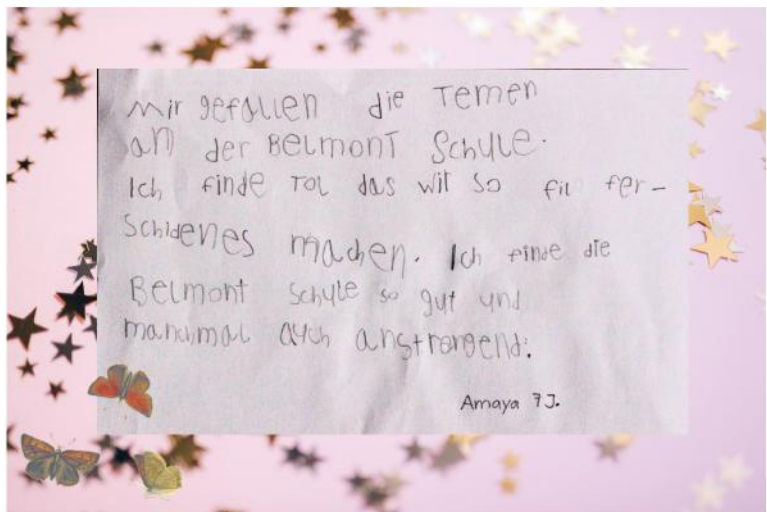 Mir gefallen die Temen
an der Belmont Schule.
Ich finde Tol das wir so fil fer-
schidenes machen. Ich finde die
Belmont Schule so gut und
manchmal auch anstrangend.
Amaya 7J.